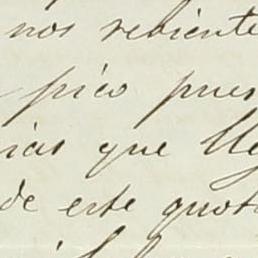 nos reciente
pico pues
rias que lle
de este quot